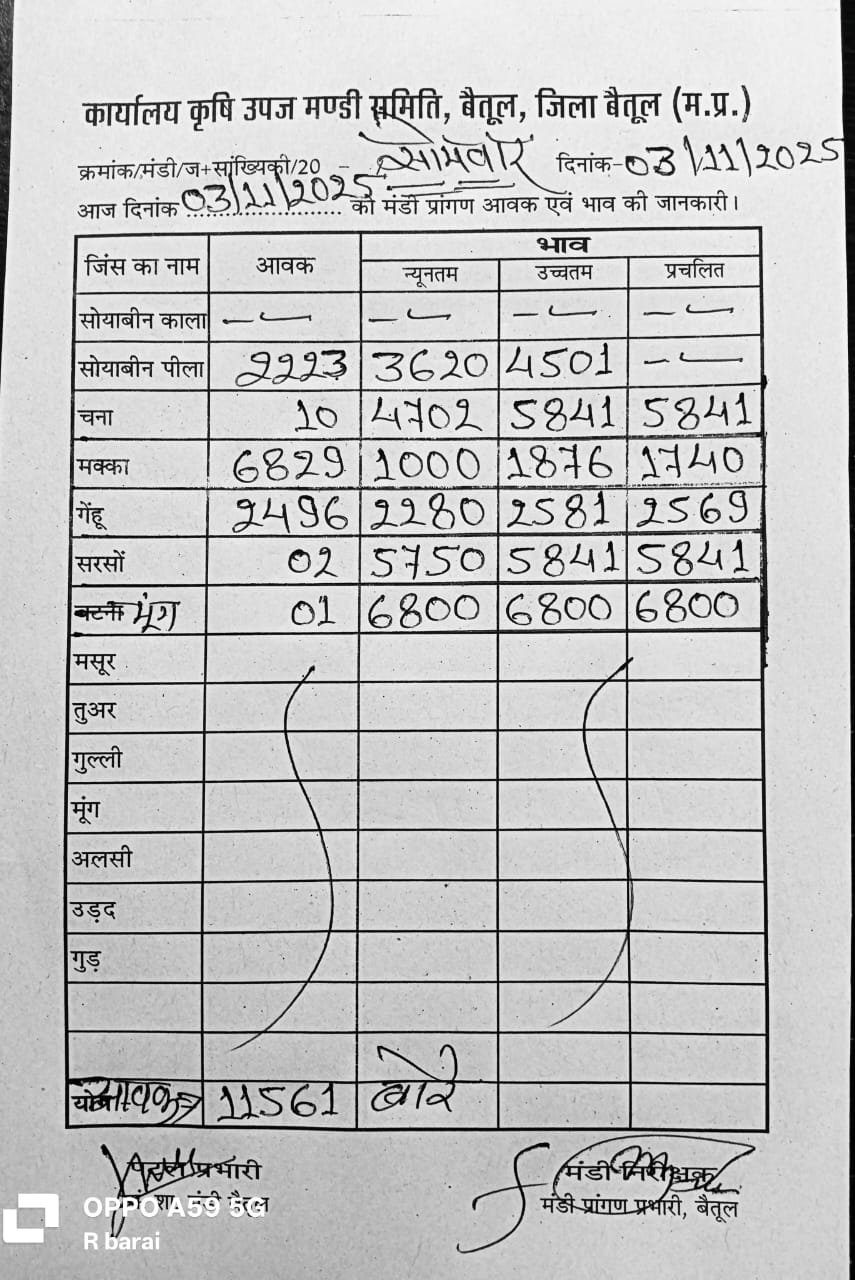 कार्यालय कृषि उपज मण्डी समिति, बैतूल, जिला बैतूल (म.प्र.)
क्रमांक/मंडी/ज+सांख्यिकी/20 - सोमवार दिनांक-03/11/2025
आज दिनांक 03/11/2025 को मंडी प्रांगण आवक एवं भाव की जानकारी।
जिंस का नाम आवक भाव
न्यूनतम उच्चतम प्रचलित
सोयाबीन काला - - - -
सोयाबीन पीला 2223 3620 4501 -
चना 10 4702 5841 5841
मक्का 6829 1000 1876 1740
गेंहू 2496 2280 2581 2569
सरसों 02 5750 5841 5841
मूंग 01 6800 6800 6800
मसूर
तुअर
गुल्ली
मूंग
अलसी
उड़द
गुड़
आवक 11561 बोरे
प्रभारी मंडी निरीक्षक
मंडी प्रांगण प्रभारी, बैतूल
OPPO A59 5G
R barai